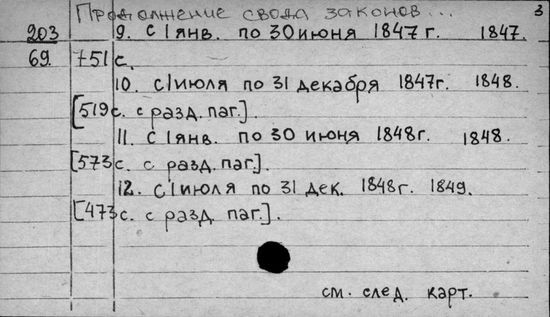 Продолжение свода законов... 3
203 9. С 1 янв. по 30 июня 1847 г. 1847.
69. 751 с.
10. С 1 июля по 31 декабря 1847г. 1848.
[519 с. с разд. паг.].
11. С 1 янв. по 30 июня 1848г. 1848.
[573 с. с разд. паг.].
12. С 1 июля по 31 дек. 1848г. 1849.
[473 с. с разд. паг.].
см. след. карт.